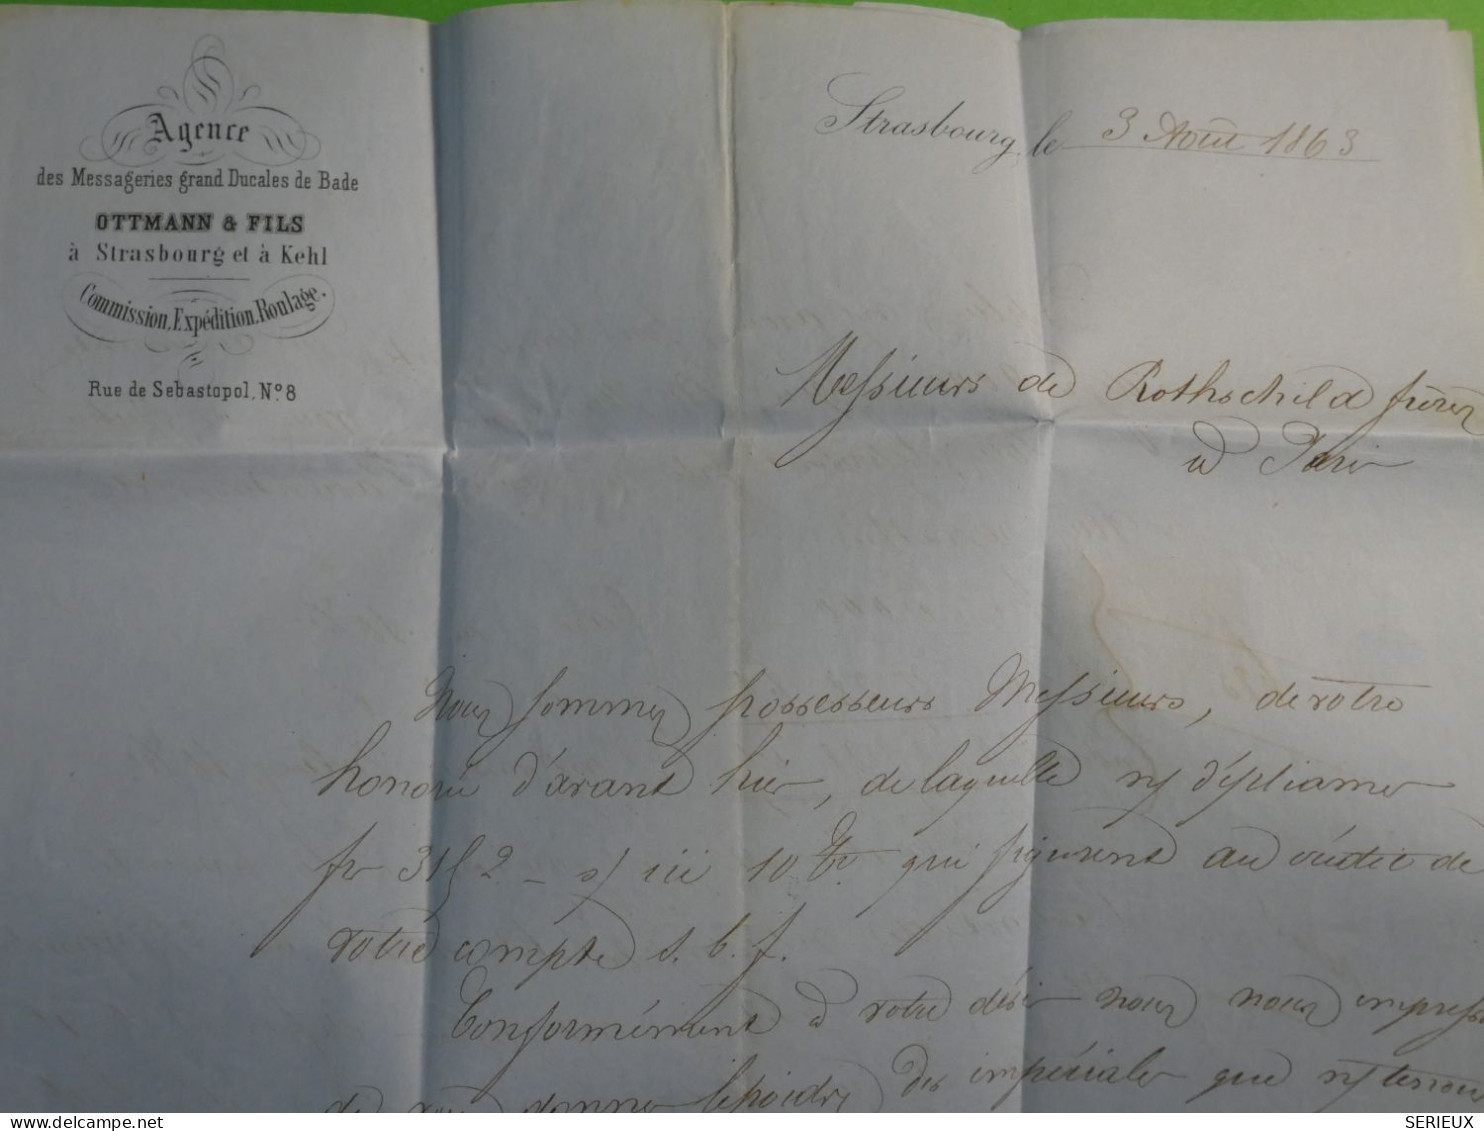 Agence
des Messageries grand Ducales de Bade
OTTMANN & FILS
à Strasbourg et à Kehl
Commission, Expédition, Roulage.
Rue de Sebastopol, Nº 8
Strasbourg, le 3 Août 1863
Messieurs de Rothschild frères
à Paris
Nous sommes possesseurs Messieurs, de votre
honorée d'avant hier, de laquelle
fr 3152 - s/ 10 qui figurent au crédit de
votre compte s. b. f.
Conformément à votre désir nous nous
de vous donner le poids des impériales que
SERIEUX